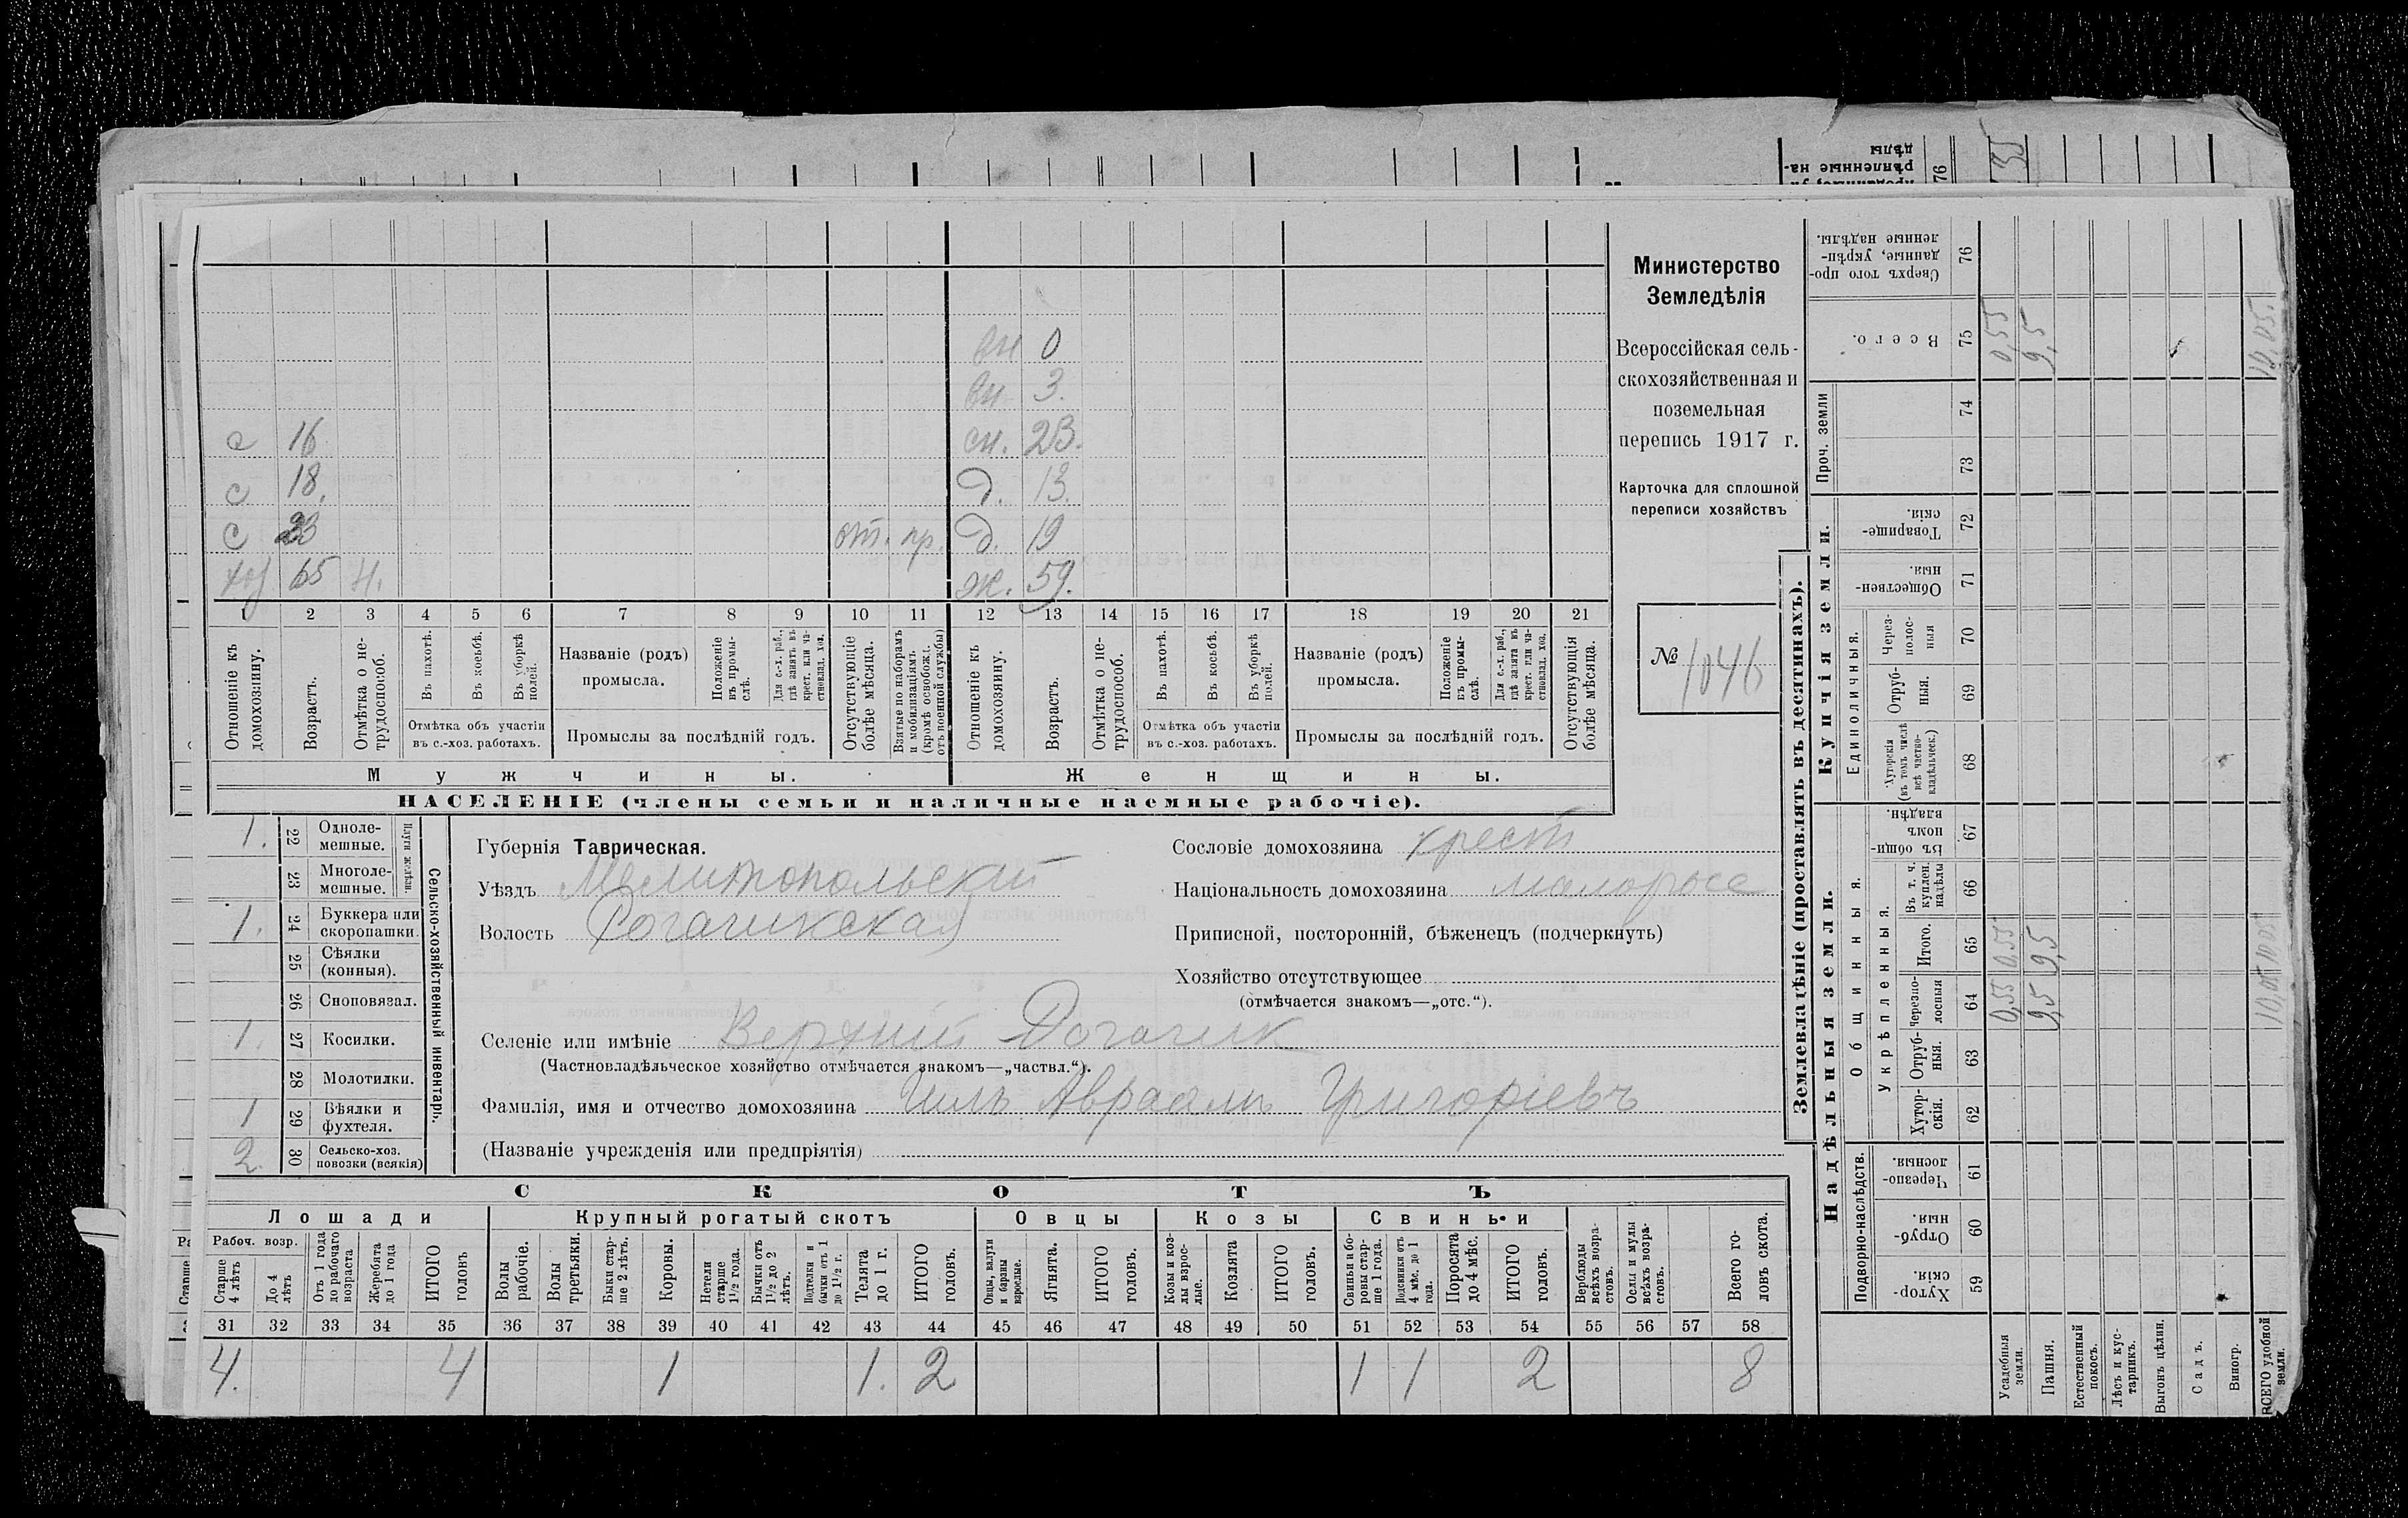 вн 0
вн 3.
с 16 сн. 23.
с 18. д. 13.
с 23 от. пр. д. 19
хоз 65 н. ж. 59.
1 2 3 4 5 6 7 8 9 10 11 12 13 14 15 16 17 18 19 20 21
Отношеніе къ домохозяину.
Возрастъ.
Отмѣтка о не-трудоспособ.
Въ пахотѣ.
Въ косьбѣ.
Въ уборкѣ полей.
Отмѣтка объ участіи
въ с.-хоз. работахъ.
Названіе (родъ)
промысла.
Положеніе въ промы-слѣ.
Для с.-х. раб., гдѣ занятъ въ крест. или ча-стновлад. хоз.
Промыслы за послѣдній годъ.
Отсутствующіе болѣе мѣсяца.
Взятые по наборамъ и мобилизаціямъ. (кромѣ освобожд. отъ военной службы)
Отношеніе къ домохозяину.
Возрастъ.
Отмѣтка о не-трудоспособ.
Въ пахотѣ.
Въ косьбѣ.
Въ уборкѣ полей.
Отмѣтка объ участіи
въ с.-хоз. работахъ.
Названіе (родъ)
промысла.
Положеніе въ промы-слѣ.
Для с.-х. раб., гдѣ занята въ крест. или ча-стновлад. хоз.
Промыслы за послѣдній годъ.
Отсутствующія болѣе мѣсяца.
Мужчины. Женщины.
НАСЕЛЕНІЕ (члены семьи и наличные наемные рабочіе).
Министерство
Земледѣлія
Всероссійская сель-
скохозяйственная и
поземельная
перепись 1917 г.
Карточка для сплошной
переписи хозяйствъ
№ 1046
1. 22 Одноле-мешные.
23 Многоле-мешные.
Плуги желѣзн.
1. 24 Буккера или скоропашки.
25 Сѣялки (конныя).
26 Сноповязал.
1. 27 Косилки.
28 Молотилки.
1 29 Вѣялки и фухтеля.
2. 30 Сельско-хоз. повозки (всякія)
Сельско-хозяйственный инвентарь.
Губернія Таврическая.
Уѣздъ Мелитопольский
Волость Рогачикская
Сословіе домохозяина крест
Національность домохозяина малоросс
Приписной, посторонній, бѣженецъ (подчеркнуть)
Хозяйство отсутствующее
(отмѣчается знакомъ—„отс.“).
Селеніе или имѣніе Верхний Рогачик
(Частновладѣльческое хозяйство отмѣчается знакомъ—„частвл.“).
Фамилія, имя и отчество домохозяина Чиль Авраамъ Григоріевъ
(Названіе учрежденія или предпріятія)
СКОТЪ
Лошади Крупный рогатый скотъ Овцы Козы Свиньи
Рабоч. возр.
Старше 4 лѣтъ
До 4 лѣтъ
Отъ 1 года до рабочаго возраста
Жеребята до 1 года
ИТОГО головъ
Волы рабочіе.
Волы третьяки.
Быки стар-ше 2 лѣтъ.
Коровы.
Нетели старше 1½ года.
Бычки отъ 1½ до 2 лѣтъ.
Подтелки и бычки отъ 1 до 1½ г.
Телята до 1 г.
ИТОГО головъ.
Овцы, валухи и бараны взрослые.
Ягнята.
ИТОГО головъ.
Козы и коз-лы взрос-лые.
Козлята
ИТОГО головъ.
Свиньи и бо-ровы стар-ше 1 года.
Подсвинки отъ 4 мѣс. до 1 года.
Поросята до 4 мѣс.
ИТОГО головъ.
Верблюды всѣхъ возра-стовъ.
Ослы и мулы всѣхъ возра-стовъ.
Всего го-ловъ скота.
31 32 33 34 35 36 37 38 39 40 41 42 43 44 45 46 47 48 49 50 51 52 53 54 55 56 57 58
4. 4 1 1. 2 1 1 2 8
Землевладѣніе (проставлять въ десятинахъ).
Надѣльныя земли. Купчія земли.
Подворно-наслѣдств.
Общинныя.
Укрѣпленныя.
Единоличныя.
Проч. земли
Сверхъ того про-данные, укрѣп-ленные надѣлы. 76
Всего. 75 0,55 9,5 10,05.
74
73
Товарище-скія. 72
Обществен-ныя. 71
Через-полос-ныя 70
Отруб-ныя. 69
Хуторскія (въ томъ числѣ всѣ частно-владѣльческ.) 68
Въ общи-номъ владѣн. 67
Въ т. ч. куплен. надѣлы 66
Итого. 65 0,55 9,5 10,05
Черезпо-лосныя 64 0,55 9,5 10,05
Отруб-ныя. 63
Хутор-скія. 62
Черезпо-лосныя. 61
Отруб-ныя. 60
Хутор-скія. 59
Усадебныя земли.
Пашня.
Естественный покосъ.
Лѣсъ и кус-тарникъ.
Выгонъ цѣлин.
Садъ.
Виногр.
ВСЕГО удобной земли.